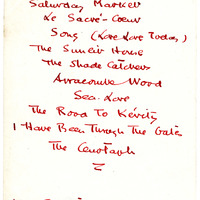 Saturday Market
Le Sacré-Coeur
Song (Love Love Today)
The Sunlit House
The Shade Catchers
Arracombe Wood
Sea Love
The Road To Kérity
I Have Been Through The Gates
The Cenotaph